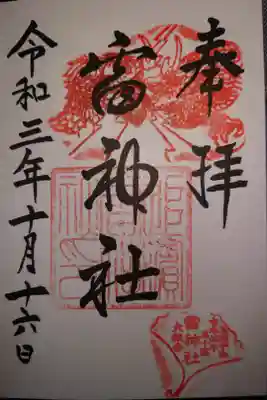 奉拝
雷神社
令和三年十月十六日
雷神社